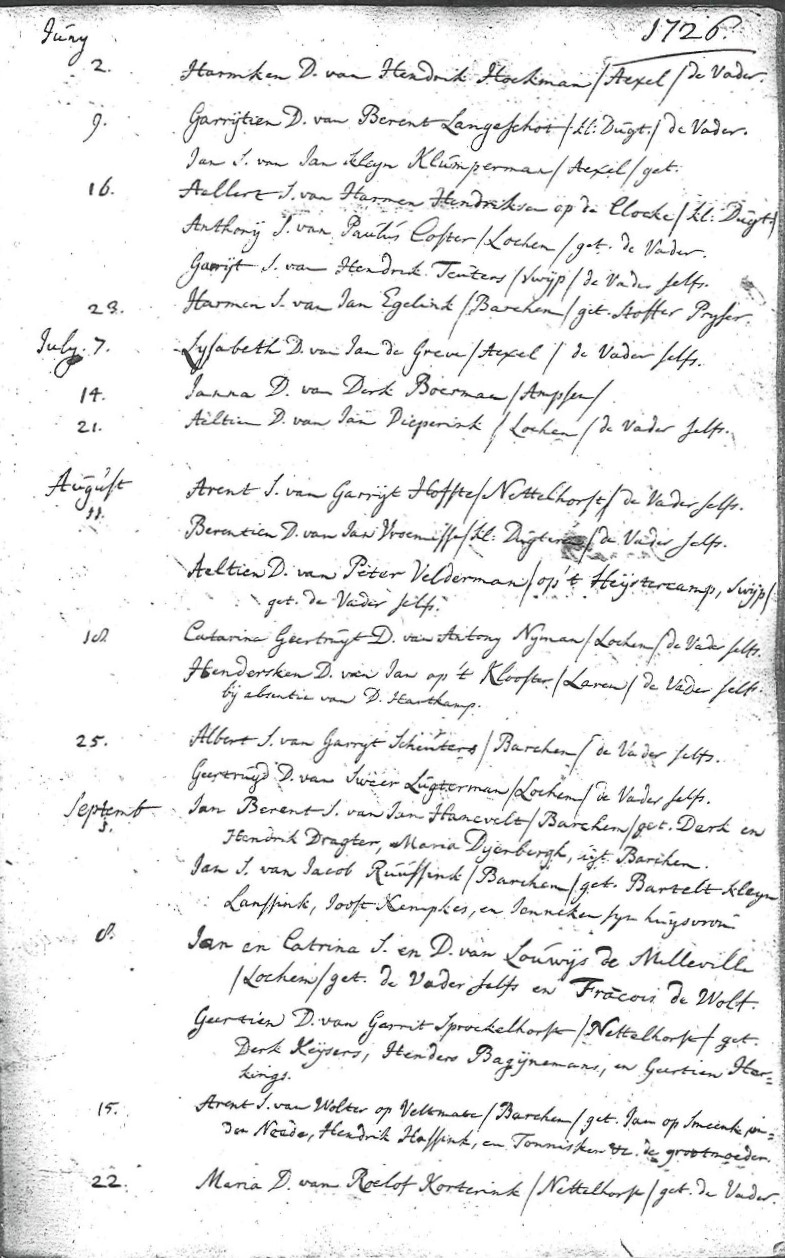 Juny 1726.
2. Harmken D. van Hendrik Hoekman / Aexel / de Vader.
9. Garrijtien D. van Berent Langeschot / kl: Dugt. / de Vader.
Jan S. van Jan kleyn Klumperman / Aexel / get.
16. Aellert S. van Harmen Hendriksen op de Clocke / kl: Dugt /
Anthonÿ S. van Paulús Coster / Lochem / get. de Vader.
Garrijt S. van Hendrik Teuters / Swijp / de Vader selfs.
23. Harmen S. van Jan Egelink / Barchem / get. Stoffer Pryser.
July. 7. Lysabeth D. van Jan de Greve / Aexel / de Vader selfs.
14. Janna D. van Derk Boerman / Ampsen /
21. Aeltien D. van Jan Dieperink / Lochem / de Vader selfs.
August
11. Arent S. van Garrijt Hoffte / Nettelhorst / de Vader selfs.
Berentien D. van Jan Vroemisse / kl: Dugteren / de Vader selfs.
Aeltien D. van Peter Velderman / op 't Heijstercamp, Swijp /
get. de Vader selfs.
18. Catarina Geertruyt D. van Antony Nyman / Lochem / de Vader selfs.
Hendersken D. van Jan op 't Klooster / Laren / de Vader selfs.
bij absentie van D. Harthamp.
25. Albert S. van Garryt Scheuters / Barchem / de Vader selfs.
Geertruijd D. van Sweer Lugterman / Lochem / de Vader selfs.
Septemb
1. Jan Berent S. van Jan Hanevelt / Barchem / get. Derk en
Hendrik Dragter, Maria Dyenbergh, uyt Barchem.
Jan S. van Jacob Ruussink / Barchem / get. Bartelt kleyn
Lanssink, Joost Kempkes, en Jenneken syn huysvrou
8. Jan en Catrina S. en D. van Louwijs de Milleville
/ Lochem / get. de Vader selfs en Fracois de Wolf.
Geertien D. van Garrit Sprockelhorst / Nettelhorst / get.
Derk Keijsers, Henders Bagijnemans, en Geertien Har=
kings.
15. Arent S. van Wolter op Veltmate / Barchem / get. Jan op Smeenk in=
den Neede, Hendrik Hassink, en Tonnisken &c. de grootmoeder.
22. Maria D. van Roelof Korterink / Nettelhorst / get. de Vader.